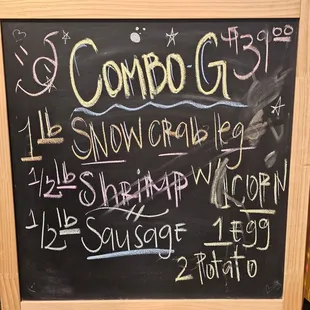 Combo-G $39.00
1 lb Snow crab leg
1/2 lb Shrimp w/ 1 CORN
1/2 lb Sausage 1 Egg
2 Potato